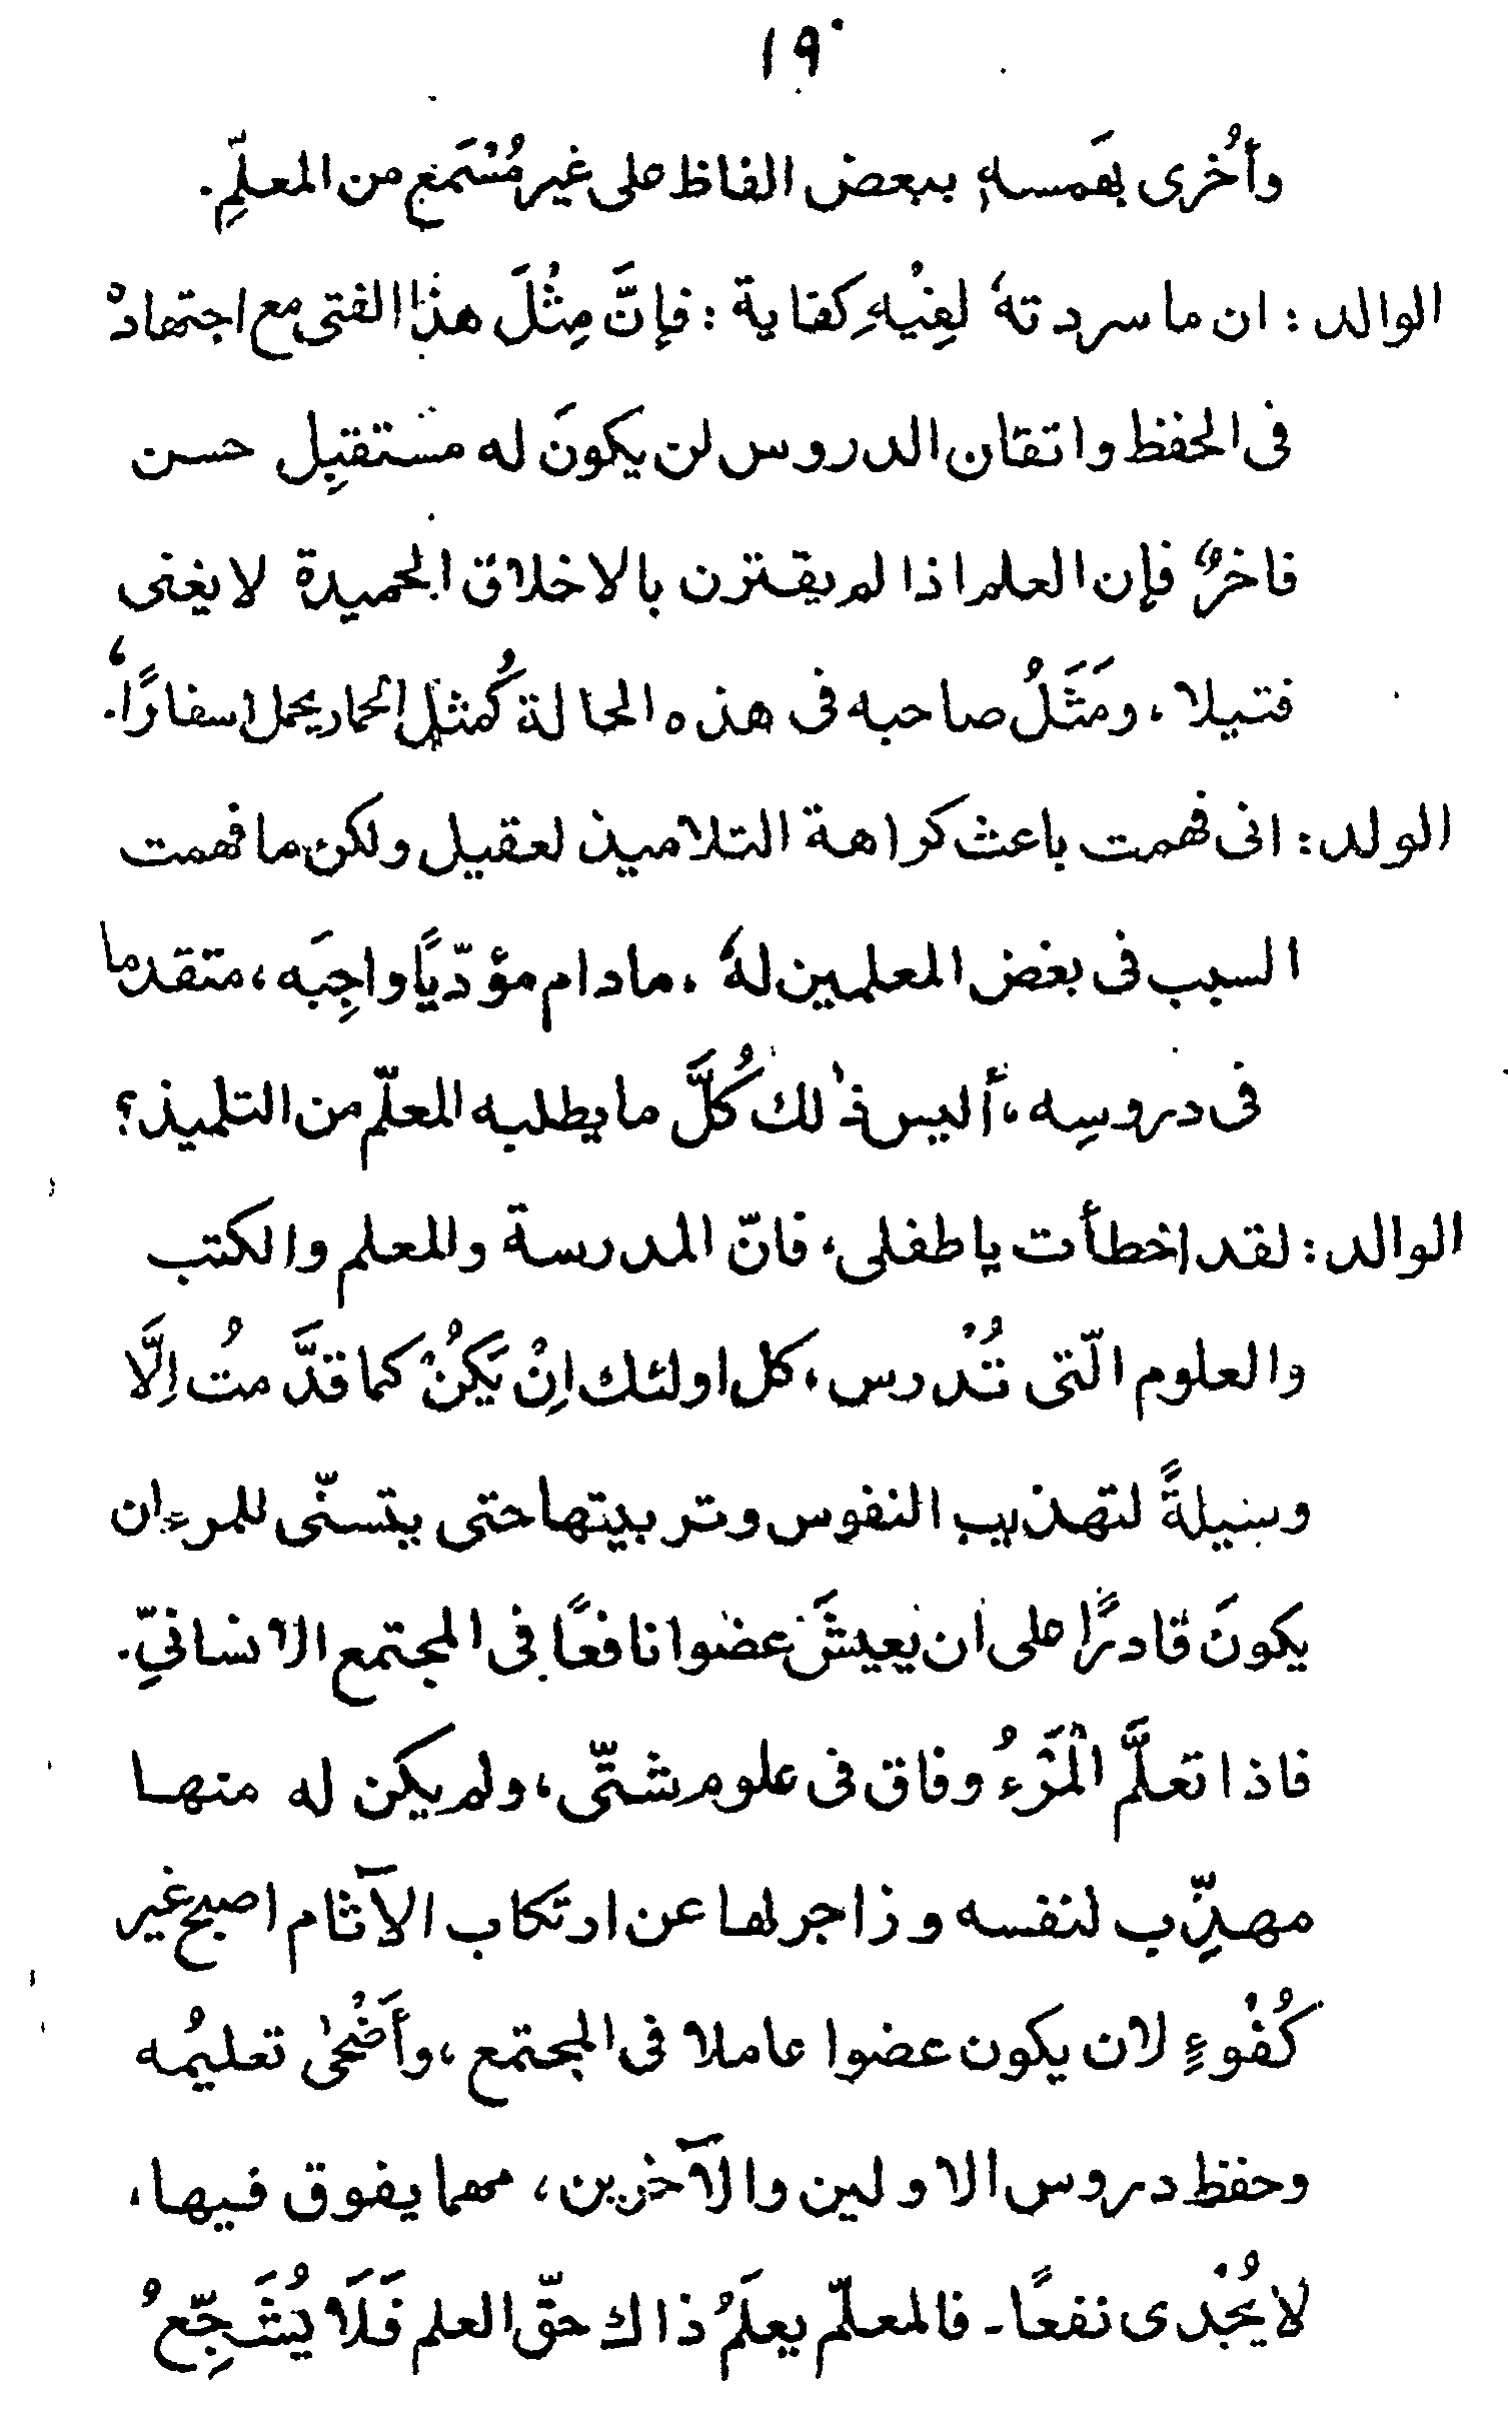 ١٩
وأُخرى بهَمسهٖ ببعض الفاظ على غير مُسْتَمَعٍ من المعلّمِ.
الوالد: ان ما سردتهٗ لفِيْهِ كفاية: فإنَّ مِثْلَ هذٰا الفتى مع اجتهادهٖ
فى الحفظ واتقان الدروس لن يكونَ له مستقبِل حسن
فاخرٌ فإن العلم اذا لم يقترن بالاخلاق الحميدة لا يغنى
فتيلا، ومَثَلُ صاحبه فى هذه الحالة كُمثل الحمار يحمل اسفارًا،.
الولد: انى فهمت باعث كراهة التلاميذ لعقيل ولكن ما فهمت
السبب فى بغض المعلمين لهٗ ، مادام مؤدّيًا واجِبَه، متقدما
فى دروسِه، أليس ذٰلك كُلَّ ما يطلبه المعلّم من التلميذ؟
الوالد: لقد اخطأت ياطفلى، فانّ المدرسة والمعلم والكتب
والعلوم الّتى تُدْرس، كل اولئك اِنْ يَكُنْ كما قدَّمتُ اِلَّا
وسيلةً لتهذيب النفوس وتربيتها حتى يتسنّى للمرء ان
يكونَ قادرًا على ان يعيشَ عضوا نافعًا فى المجتمع الانسانىّ.
فاذا تعلَّم الْمَرْءُ وفاق فى علوم شتّى، ولم يكن له منها
مهذِّب لنفسه وزاجر لها عن ارتكاب الآثام اصبح غير
كُفْوءٍ لان يكون عضوا عاملا فى المجتمع، وأَضْحٰى تعليمُه
وحفظ دروس الاولين والآخرين، مهما يفوق فيها،
لا يُجْدى نفعًا ـ فالمعلّم يعلَمُ ذاك حقّ العلم فَلَا يُشَجِّعُ